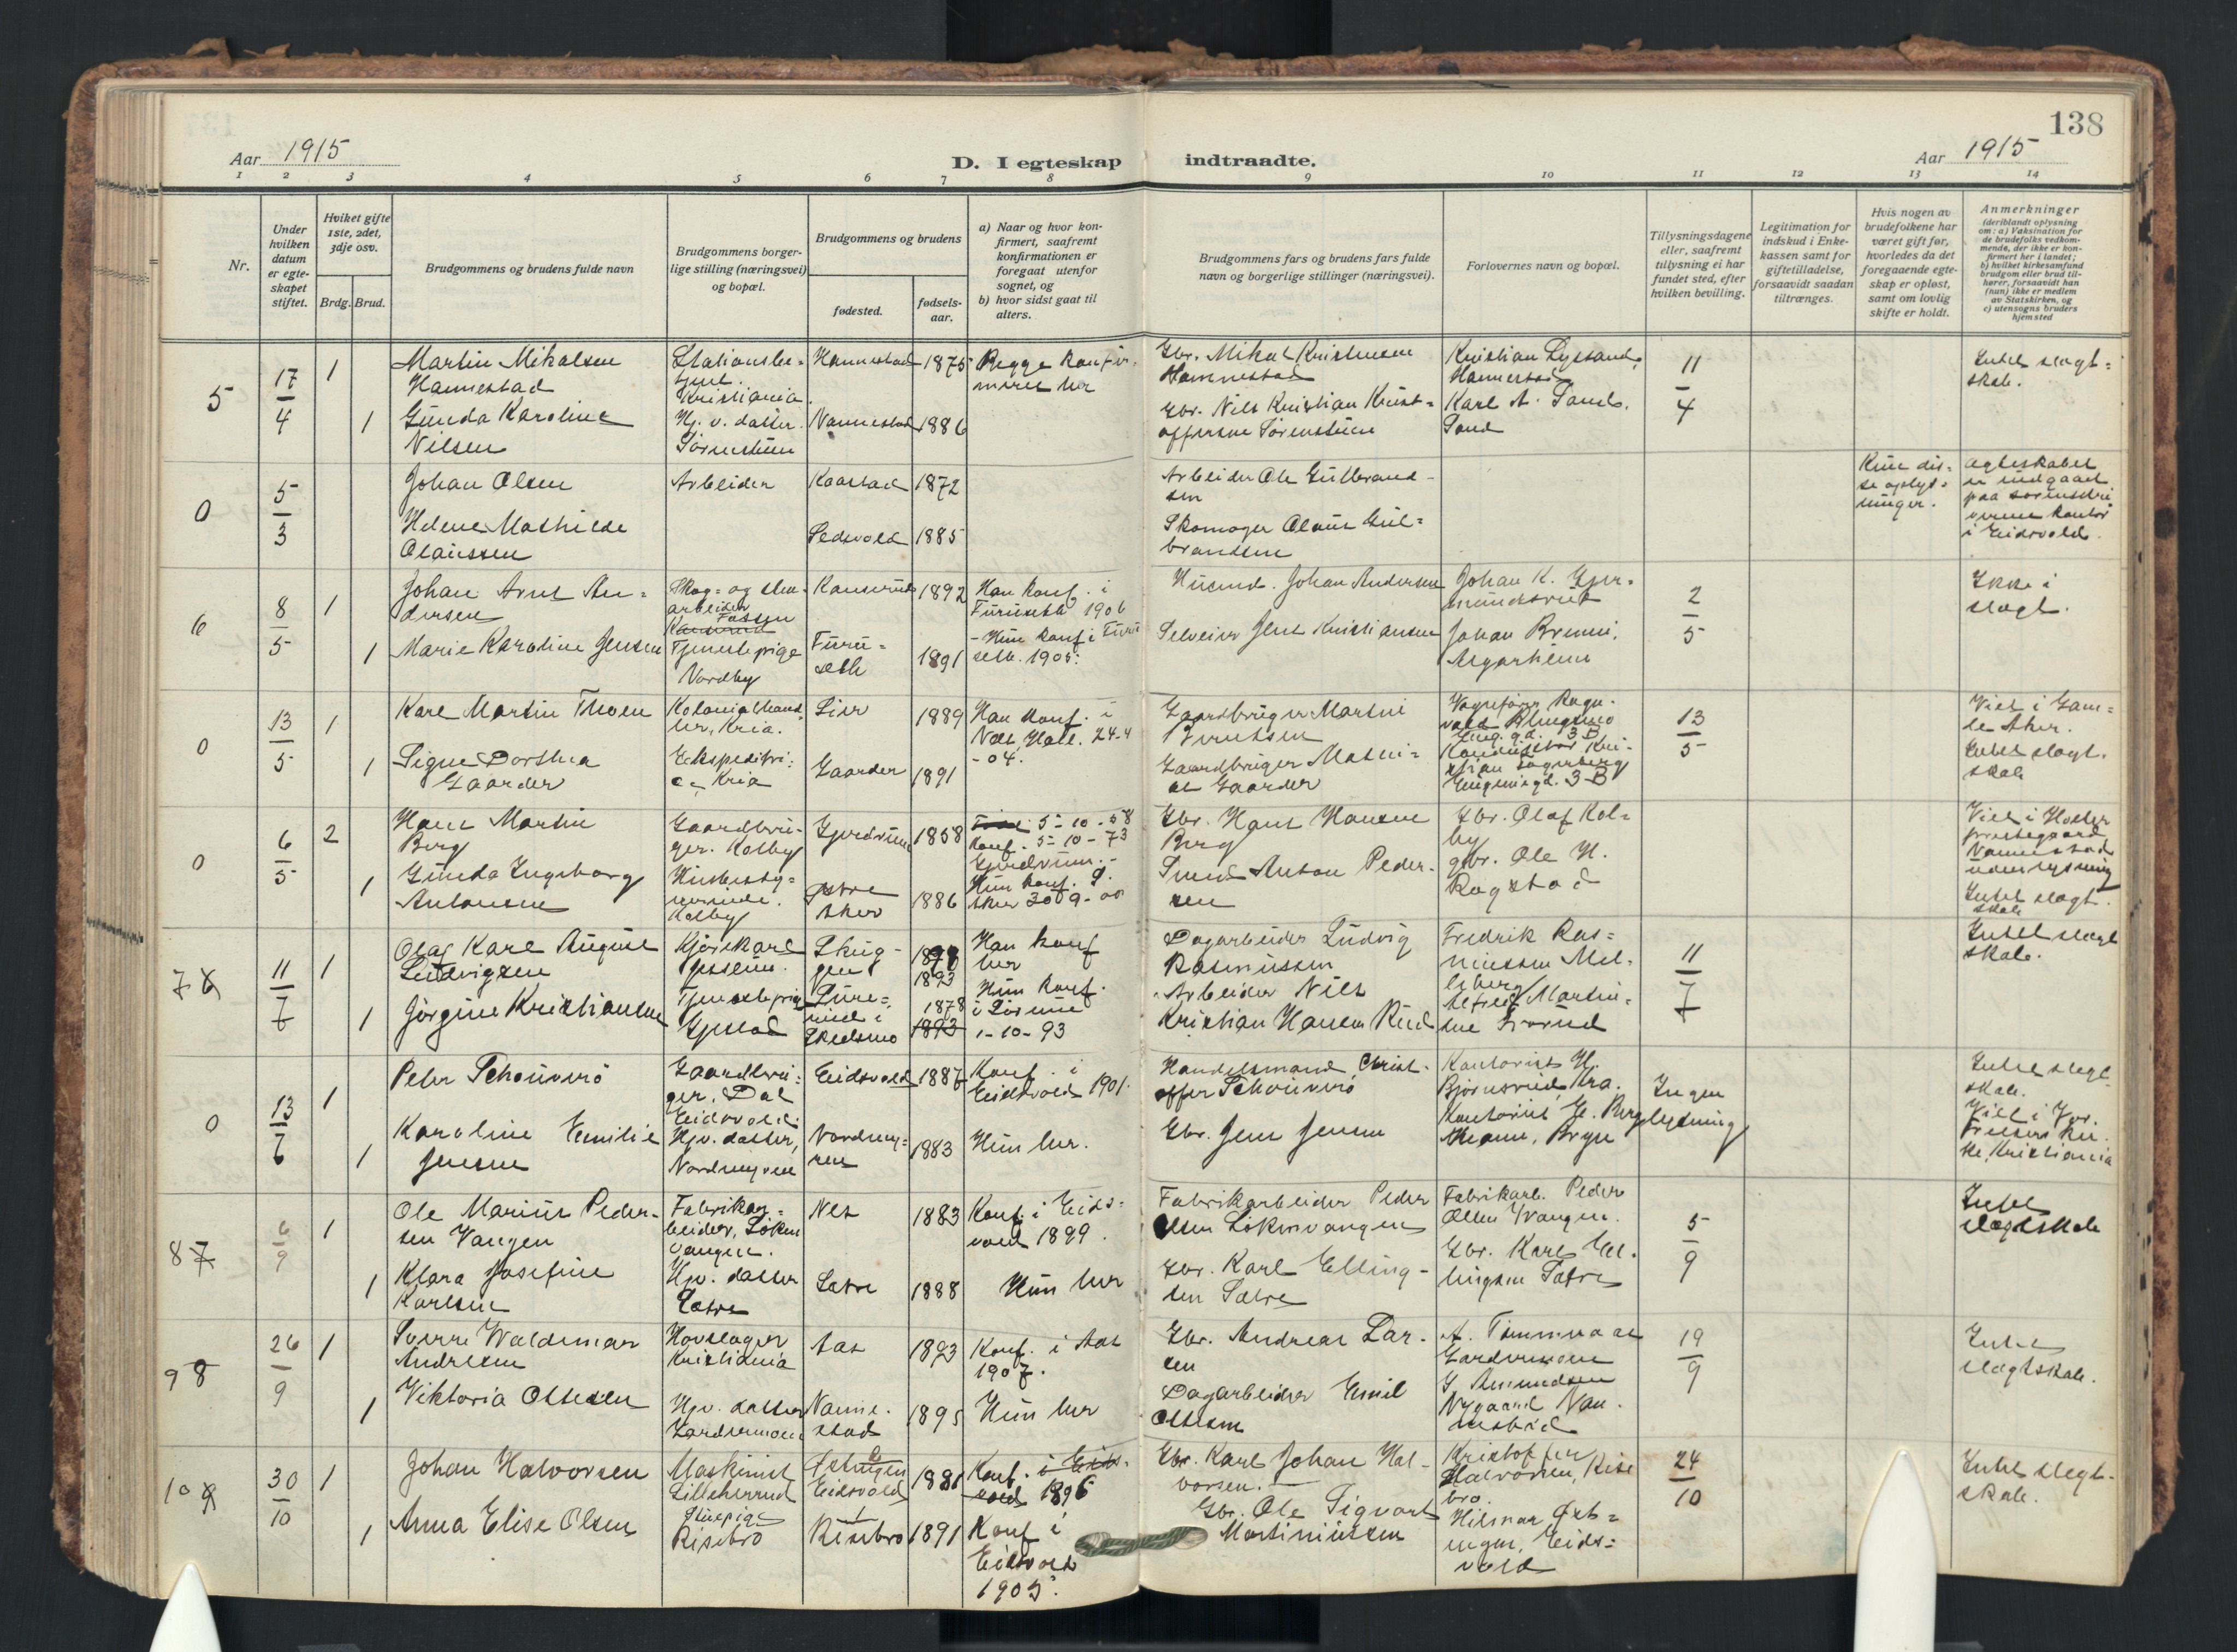 138
Aar 1915
D. I egteskap indtraadte.
Aar 1915
1 2 3 4 5 6 7 8 9 10 11 12 13 14
Nr.
Under hvilken datum er egteskapet stiftet.
Hvilket gifte 1ste, 2det, 3dje osv.
Brdg. Brud.
Brudgommens og brudens fulde navn
Brudgommens borgerlige stilling (næringsvei) og bopæl.
Brudgommens og brudens
fødested.
fødselsaar.
a) Naar og hvor konfirmert, saafremt konfirmationen er foregaat utenfor sognet, og
b) hvor sidst gaat til alters.
Brudgommens fars og brudens fars fulde navn og borgerlige stillinger (næringsvei).
Forlovernes navn og bopæl.
Tillysningsdagene eller, saafremt tillysning ei har fundet sted, efter hvilken bevilling.
Legitimation for indskud i Enkekassen samt for giftetilladelse, forsaavidt saadan tiltrænges.
Hvis nogen av brudefolkene har været gift før, hvorledes da det foregaaende egteskap er opløst, samt om lovlig skifte er holdt.
Anmerkninger
(deriblandt oplysning om: a) Vaksination for de brudefolks vedkommende, der ikke er konfirmert her i landet;
b) hvilket kirkesamfund brudgom eller brud tilhører, forsaavidt han (hun) ikke er medlem av Statskirken, og
c) utensogns bruders hjemsted
5
17/4
1
Martin Mikalsen
Hannestad
Kristiania
Hannestad 1875
Begge konfirmeret her
Gbr. Mikal Kristensen
Hannestad
Hannestad
11/4
Intet slægtskab.
1
Gunda Karoline
Nilsen
Hj. v. datter.
Nannestad 1886
Gbr. Nils Kristian Kristoffersen
Karl A. Sand.
Sand
0
5/3
Johan Olsen
Arbeider
Kaastad 1872
Arbeider Ole Gulbrandsen
Kun disse oplysninger.
egteskabet er indgaaet paa sorenskriverens kontor i Eidsvold.
Helene Mathilde
Olaussen
1885
Skomager Olaus Gulbrandsen
6
8/5
1
Johan Arnt Andersen
Skog- og
arbeider
1892
Han konf. i
Furuseth 1906
Husmd. Johan Andersen
Johan K.
2/5
Ikke i
slægt.
1
Marie Karoline Jensen
Tjenestepige
Nordby
Furuseth
1891
Hun konf i Furuseth. 1905.
Selveier Jens Kristiansen
Johan
Algarheim
0
13/5
1
Karl Martin Thoen
Kolonialhandler, Kria.
Lier
1889
Han konf. i
24-4-04.
Gaardbruger Martin
13/5
Viet i Gamle Aker.
Intet slægtskab
1
Signe Dorthea
Gaarder
Kria
Gaarder 1891
Gaardbruger
Gaarder
3 B
0
6/5
2
Hans Martin
Berg
Gaardbruger. Kolby
Gjerdrum 1858
5-10-58
Konf. 5-10-73
Gjerdrum.
Gbr. Hans Hansen
Berg
Gbr. Olaf Kolby
Viet i Holter
prestegaard
Nannestad
uten lysning
Intet slægtskab
1
Gunda Ingeborg
Antonsen
Kolby
Østre
Aker
1886
Hun konf. Ø.
Aker 30-9-00
Smed Anton Pedersen
gbr. Ole H.
Ragstad
7 6
11/7
1
Olaf Karl August
Ludvigsen
1893
Han konf
her
Dagarbeider Ludvig
Rasmussen
Fredrik Rasmussen
11/7
Intet slægtskab.
1
Jørgine Kristiansen
Tjenestepige
Gjestad
i
Skedsmo
1878
1893
Hun konf.
i Sørum
1-10-93
Arbeider Nils
Kristian Hansen Rud
Alfred
0
13/6
1
Peter
Gaardbruger, Dal
Eidsvold.
Eidsvold 1887
Konf. i
Eidsvold 1901.
Handelsmand Christoffer
Kontorist H.
Kra.
Ingen
lysning
Intet slægtskab.
Viet i
Kristiania
1
Karoline Emilie
Jensen
Hjv. datter,
Nordmyren
Nordmyren
1883
Hun her.
Gbr. Jens Jensen
Kontorist
Bryn
8 7
6/9
1
Ole Marius Pedersen Vangen
Fabrikarbeider, Løkenvangen.
Nes
1883
Konf. i Eidsvold 1899.
Fabrikarbeider Peder
Olsen Løkenvangen
Fabrikarb. Peder
Olsen Vangen.
5/9
Intet
slægtskab
1
Klara Josefine
Karlsen
Hjv. datter
Sætre
Sætre
1888
Hun her
Gbr. Karl Ellingsen Sætre
Gbr. Karl Ellingsen Sætre
9 8
26/9
1
Sverre Waldemar
Andresen
Hovslager
Kristiania
Aas
1893
Konf. i Aas
1907.
Gbr. Andreas Larsen
A.
Gardermoen
19/9
Intet
slægtskab.
1
Viktoria Ottesen
Hjv. datter
Gardermoen
Nannestad
1895
Hun her
Dagarbeider Emil
Ottesen
Amundsen
Nygaard Nannestad
10 9
30/10
1
Johan Halvorsen
Maskinist
Eidsvold
1881
Konf. i Eidsvold 1896
Gbr. Karl Johan Halvorsen.
Kristoffer
Halvorsen, Risebro.
24/10
Intet slægtskab.
1
Anna Elise Olsen
Stuepige
Risebro
Risebro 1891
Konf i
Eidsvold
1905.
Gbr. Ole Sigvart
Martiniussen
Hilmar Østungen, Eidsvold